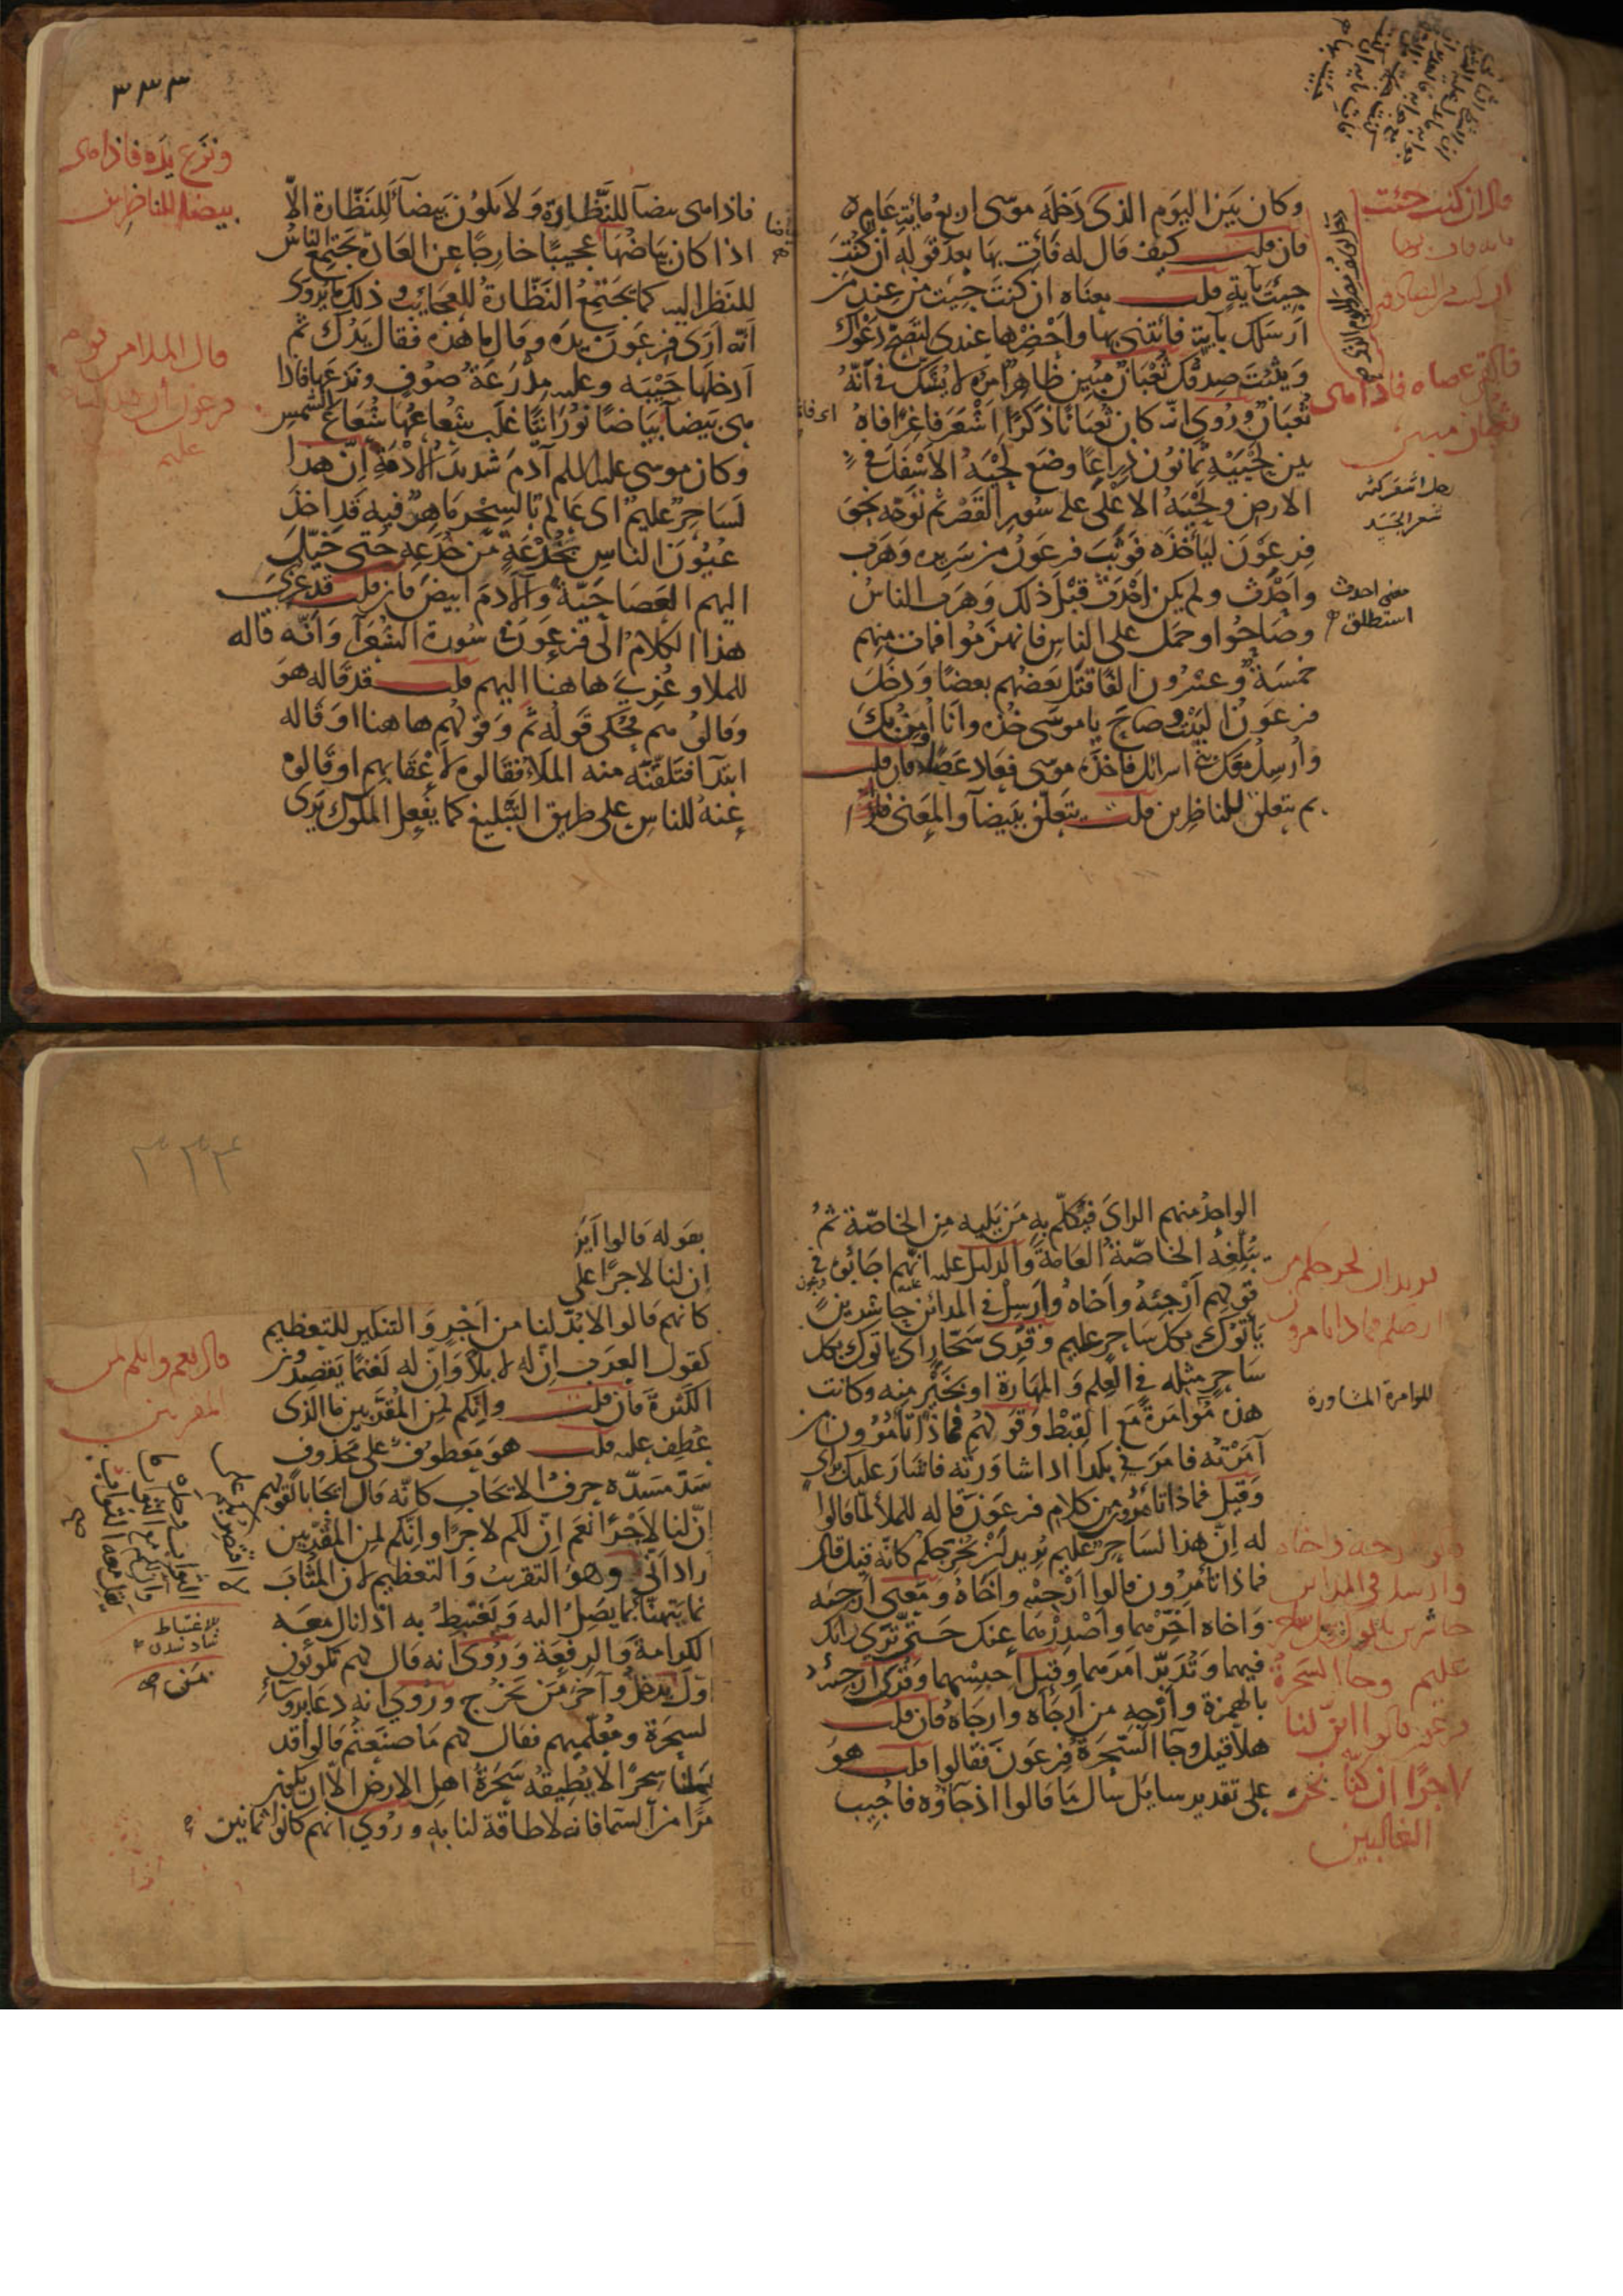 وكان بين اليوم الذى دخله موسى اربع مائة عام
فان قلت كيف قال له فأت بها بعد قوله ان كنت
جئت بآية قلت معناه ان كنت جئت من عند من
ارسلك بآية فائتنى بها واحضرها عندى لتصح دعواك
ويثبت صدقك ثعبان مبين ظاهر امره لا يشك فى انه
ثعبان وروى انه كان ثعبانا ذكرا اشعر فاغرا فاه
بين لحييه ثمانون ذراعا وضع لحيه الاسفل فى
الارض ولحيه الاعلى على سور القصر ثم توجه نحو
فرعون ليأخذه فوثب فرعون من سريره وهرب
واحدث ولم يكن احدث قبل ذلك وهرب الناس
وصاحوا وحمل على الناس فانهزموا فمات منهم
خمسة وعشرون الفا قتل بعضهم بعضا ودخل
فرعون البيت وصاح يا موسى خذه وانا اومن بك
وارسل معك بنى اسرائل فاخذه موسى فعاد عصا فان قلت
بم يتعلق للناظرين قلت يتعلق ببيضآ والمعنى فاذا
قال ان كنت جئت
فالقى عصاه فاذا هى
ثعبان مبين
رجل اشعر كثير
شعر الجسد
معنى احدث
استطلق
٣٣٣
ونزع يده فاذا هى
بيضا للناظرين
قال الملا من قوم
فرعون ان هذا لساحر
عليم
فاذا هى بيضآ للنظارة ولا يكون بيضآ للنظارة الّا
اذا كان بياضها عجيبا خارجا عن العادة يجتمع الناس
للنظر اليه كما يجتمع النظارة للعجائب وذلك ما يروى
انه ارى فرعون يده وقال ما هذه فقال يدك ثم
ادخلها جيبه وعليه مدرعة صوف ونزعها فاذا
هى بيضا بياضا نورانيا غلب شعاعها شعاع الشمس
وكان موسى عليه السلم آدم شديد الادمة ان هذا
لساحر عليم اى عالم بالسحر ماهر فيه قد اخذ
عيون الناس بخدعة من خدعه حتى خيل
اليهم العصا حية والآدم ابيض فان قلت قد عزى
هذا الكلام الى فرعون فى سورة الشعرآ وانه قاله
للملا وعزى هاهنا اليهم قلت قد قاله هو
وقالوه هم فحكى قوله ثم وقولهم هاهنا او قاله
ابتدآ فتلقنه منه الملأ فقالوه لاعقابهم او قالوه
عنه للناس على طريق التبليغ كما يفعل الملوك يرى
الواحد منهم الراى فيكلم به من يليه من الخاصة ثم
يبلغه الخاصة العامة والدليل عليه انهم اجابوه فى
قولهم ارجئه واخاه وارسل فى المدائن حاشرين
يأتوك بكل ساحر عليم وقرى سحار اى ياتوك بكل
ساحر مثله فى العلم والمهارة او بخير منه وكانت
هذه مؤامرة مع القبط وقولهم فماذا تأمرون من
آمرته فامرنى بكذا اذا شاورته فاشار عليك براى
وقيل فماذا تأمرون من كلام فرعون قاله للملأ لما قالوا
له ان هذا لساحر عليم يريد ان يخرجكم كانه قيل قال
فماذا تأمرون قالوا ارجئه واخاه ومعنى ارجئه
واخاه اخرهما واصدرهما عنك حتى ترى رايك
فيهما وتدبر امرهما وقيل احبسهما وقرى ارجئه
بالهمزة وارجه من ارجأه وارجاه فان قلت
هلا قيل وجآ السحرة فرعون فقالوا قلت هو
على تقدير سايل سال ما قالوا اذ جآؤه فاجيب
يريد ان يخرجكم من
ارضكم فماذا تامرون
المؤامرة المشاورة
قالوا ارجه واخاه
وارسل فى المداين
حاشرين ياتوك بكل ساحر
عليم وجا السحرة
فرعون قالوا ائن لنا
لاجرا ان كنا نحن
الغالبين
٣٣٤
بقوله قالوا أين
ان لنا لاجرا على
كانهم قالوا لا بد لنا من اجر والتنكير للتعظيم
كقول العرب ان له لابلا وان له لغنما يقصدون
الكثرة فان قلت وانكم لمن المقربين ما الذى
عطف عليه قلت هو معطوف على محذوف
سد مسده حرف الايجاب كانه قال ايجابا لقولهم
ان لنا لاجرا نعم ان لكم لاجرا وانكم لمن المقربين
اراد انى وهو التقريب والتعظيم لان المثاب
انما يتهنا بما يصل اليه ويغتبط به اذا نال معه
الكرامة والرفعة وروى انه قال لهم تكونون
اول من يدخل وآخر من يخرج وروى انه دعا برؤسآء
السحرة ومعلميهم فقال لهم ما صنعتم قالوا قد
عملنا سحرا لا يطيقه سحرة اهل الارض الّا ان يكون
امرا من السما فانه لا طاقة لنا به وروى انهم كانوا ثمانين
قال نعم وانكم لمن
المقربين
الاغتباط